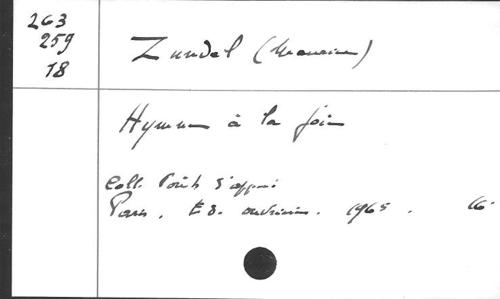 263
259
18
Zundel (Maurice)
Hymne à la joie
Coll. Points d'appui
Paris. Ed. ouvrières. 1965. 16°